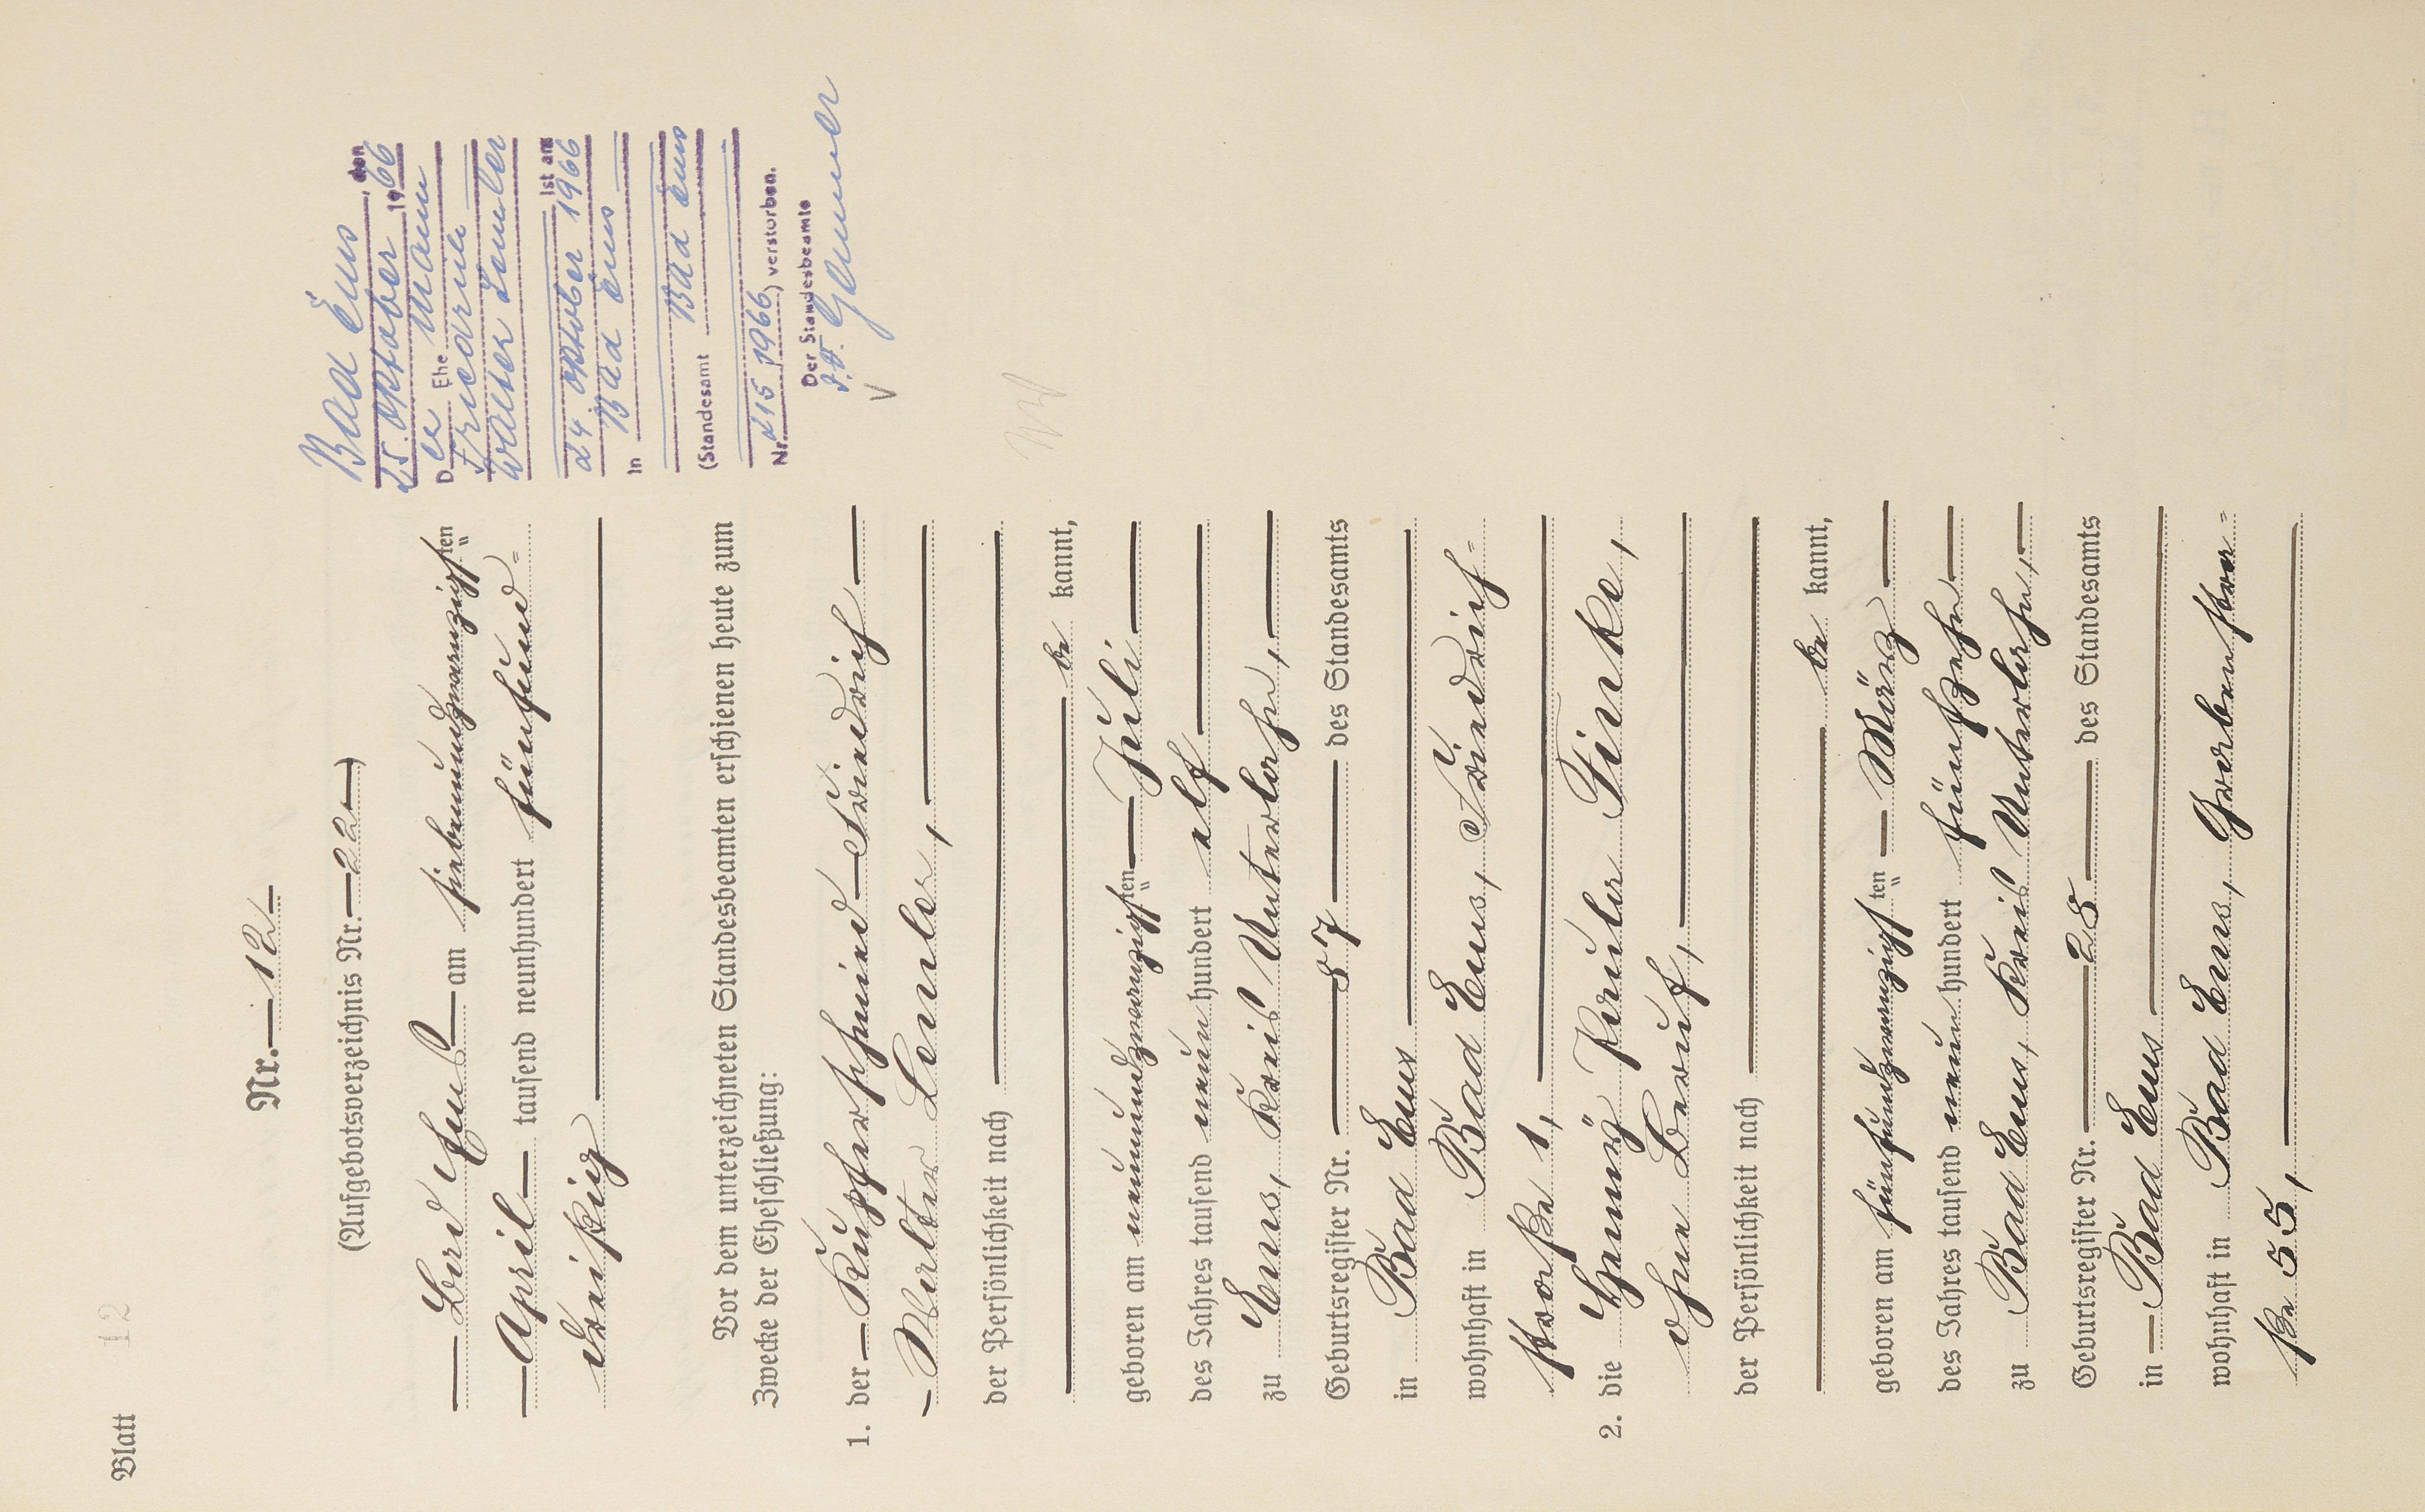 Blatt 12
Nr. 12
(Aufgebotsverzeichnis Nr. 22)
Bad Ems am siebenundzwanzigsten
April tausend neunhundert fünfund=
dreißig
Vor dem unterzeichneten Standesbeamten erschienen heute zum
Zwecke der Eheschließung:
1. der Kupferschmied Friedrich
Walter Lemler,
der Persönlichkeit nach
be kannt,
geboren am neunundzwanzigsten Juli
des Jahres tausend neun hundert elf
zu Ems, Kreis Unterlahn,
Geburtsregister Nr. 87 des Standesamts
in Bad Ems
wohnhaft in Bad Ems, Friedrich=
straße 1,
2. die Paula Finke,
ohne Beruf,
der Persönlichkeit nach
be kannt,
geboren am fünfundzwanzigsten März
des Jahres tausend neun hundert fünfzehn
zu Bad Ems, Kreis Unterlahn,
Geburtsregister Nr. 28 des Standesamts
in Bad Ems
wohnhaft in Bad Ems, Grabenstra=
ße 55,
Bad Ems, den
25. Oktober 1966
Der Ehemann
Friedrich
Walter Lemler
ist am
24. Oktober 1966
in Bad Ems
(Standesamt Bad Ems
Nr. 215/1966) verstorben.
Der Standesbeamte
I.V.